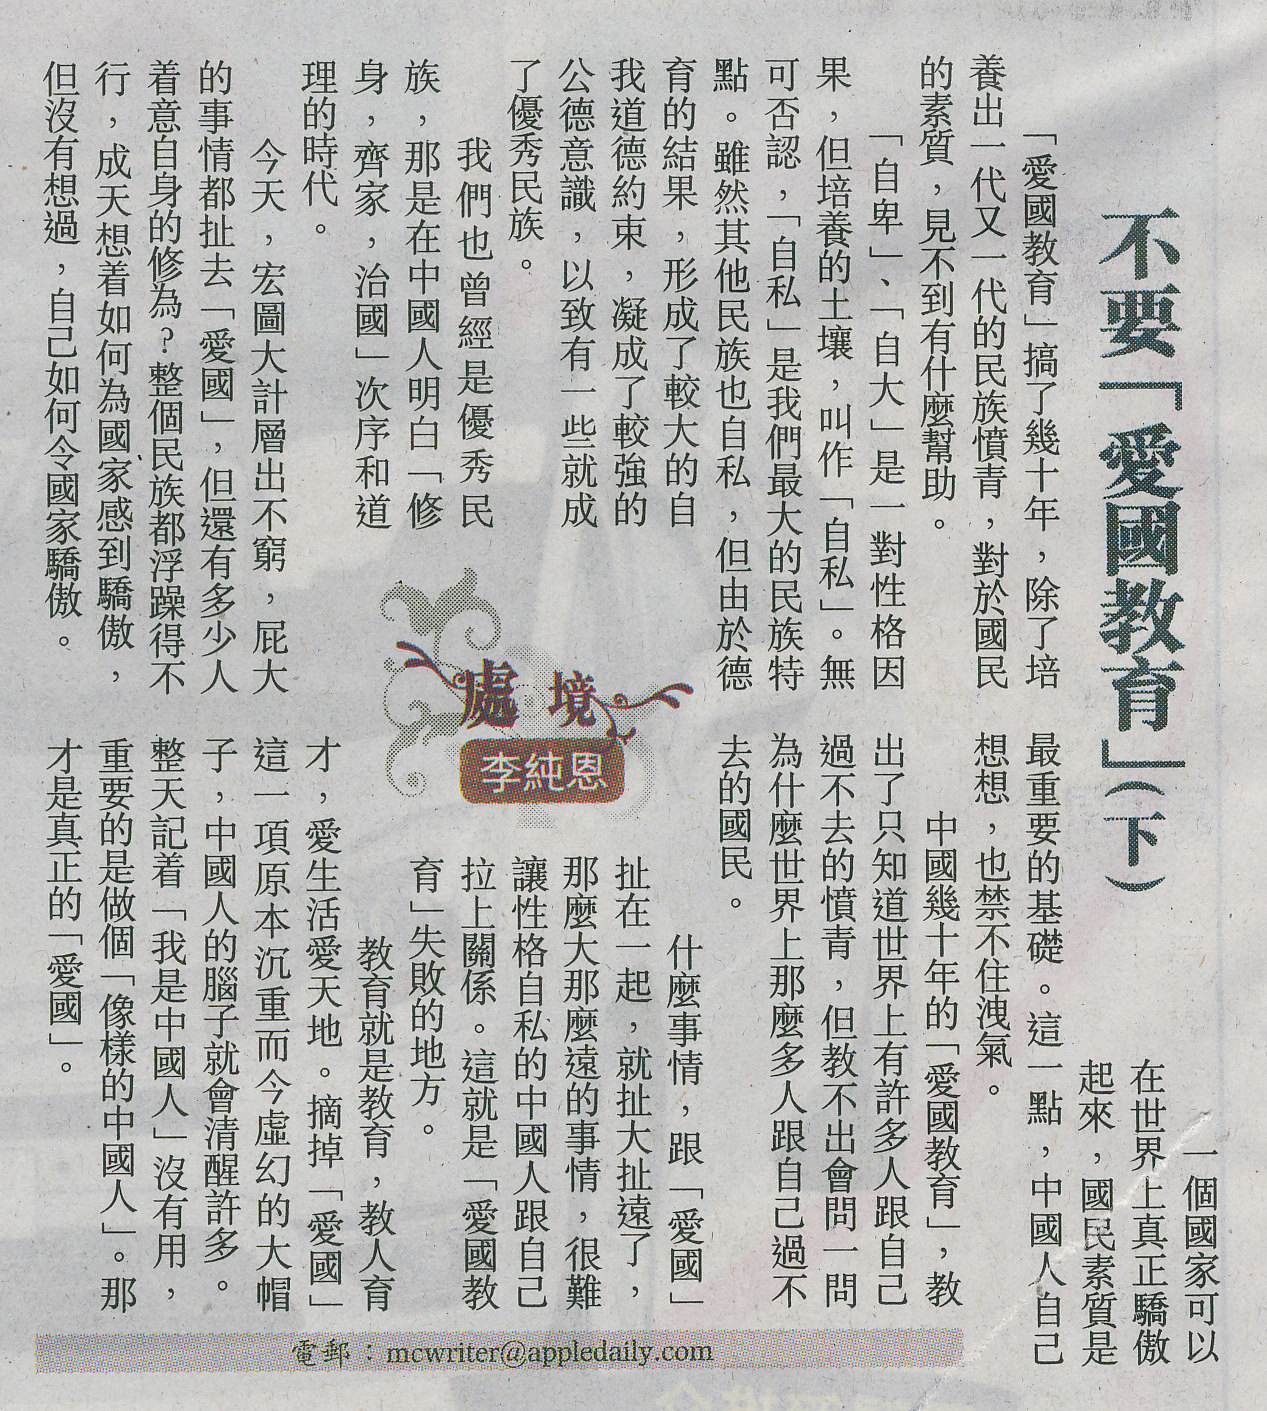 不要「愛國教育」(下)
處境
李純恩
「愛國教育」搞了幾十年，除了培
養出一代又一代的民族憤青，對於國民
的素質，見不到有什麼幫助。
「自卑」、「自大」是一對性格因
果，但培養的土壤，叫作「自私」。無
可否認，「自私」是我們最大的民族特
點。雖然其他民族也自私，但由於德
育的結果，形成了較大的自
我道德約束，凝成了較強的
公德意識，以致有一些就成
了優秀民族。
我們也曾經是優秀民
族，那是在中國人明白「修
身，齊家，治國」次序和道
理的時代。
今天，宏圖大計層出不窮，屁大
的事情都扯去「愛國」，但還有多少人
着意自身的修為?整個民族都浮躁得不
行，成天想着如何為國家感到驕傲，
但沒有想過，自己如何令國家驕傲。
一個國家可以
在世界上真正驕傲
起來，國民素質是
最重要的基礎。這一點，中國人自己
想想，也禁不住洩氣。
中國幾十年的「愛國教育」，教
出了只知道世界上有許多人跟自己
過不去的憤青，但教不出會問一問
為什麼世界上那麼多人跟自己過不
去的國民。
什麼事情，跟「愛國」
扯在一起，就扯大扯遠了，
那麼大那麼遠的事情，很難
讓性格自私的中國人跟自己
拉上關係。這就是「愛國教
育」失敗的地方。
教育就是教育，教人育
才，愛生活愛天地。摘掉「愛國」
這一項原本沉重而今虛幻的大帽
子，中國人的腦子就會清醒許多。
整天記着「我是中國人」沒有用，
重要的是做個「像樣的中國人」。那
才是真正的「愛國」。
電郵：mcwriter@appledaily.com